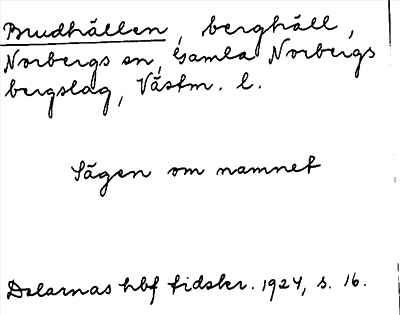 Brudhällen, berghäll,
Norbergs sn, Gamla Norbergs
bergslag, Västm. l.
Sägen om namnet
Dalarnas hbf tidskr. 1924, s. 16.